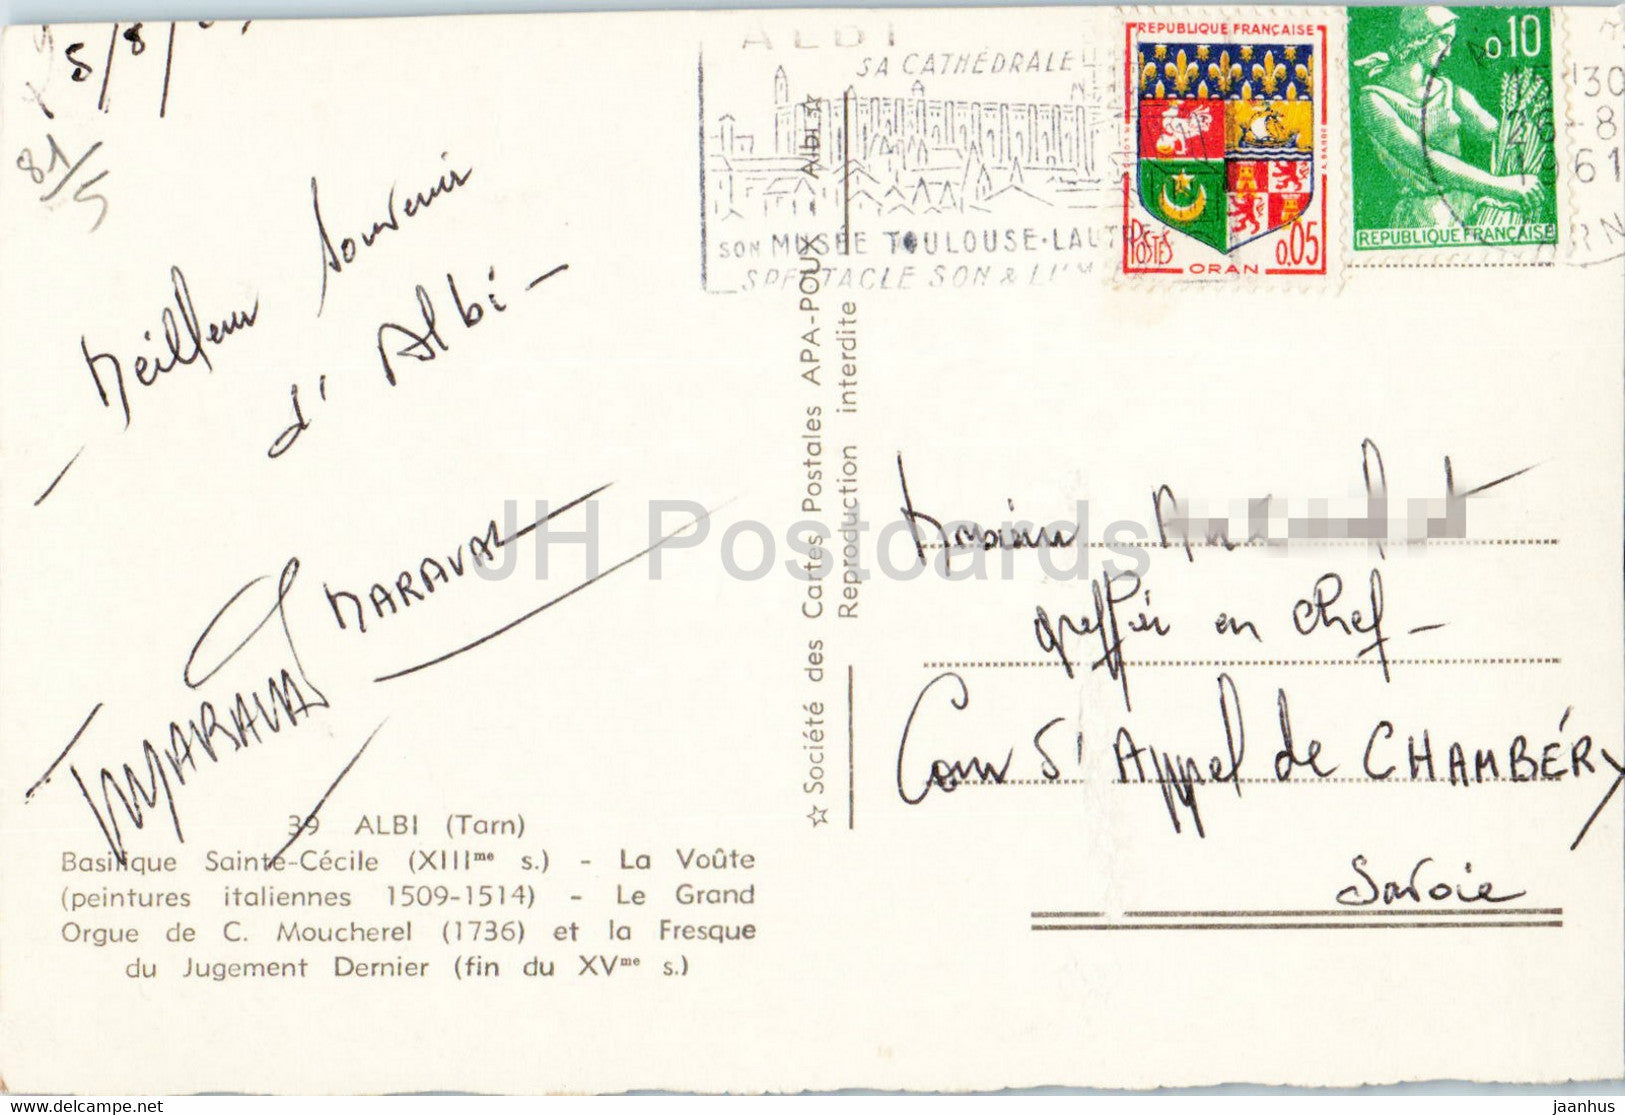 5/8/
81/5
Meilleur Souvenir
d'Albi -
MARAVAL
MARAVAL
39 ALBI (Tarn)
Basilique Sainte-Cécile (XIIIme s.) - La Voûte
(peintures italiennes 1509-1514) - Le Grand
Orgue de C. Moucherel (1736) et la Fresque
du Jugement Dernier (fin du XVme s.)
☆ Société des Cartes Postales APA-POUX Albi ☆
Reproduction interdite
ALBI
SA CATHÉDRALE
SON MUSÉE TOULOUSE-LAUT
SPECTACLE SON & LUM
REPUBLIQUE FRANÇAISE
POSTES
ORAN
0,05
0,10
REPUBLIQUE FRANÇAISE
30
26-8
1961
TARN
Monsieur
greffier en chef -
Cour d'Appel de CHAMBÉRY
Savoie
JH Postcards
www.delcampe.net
jaanhus